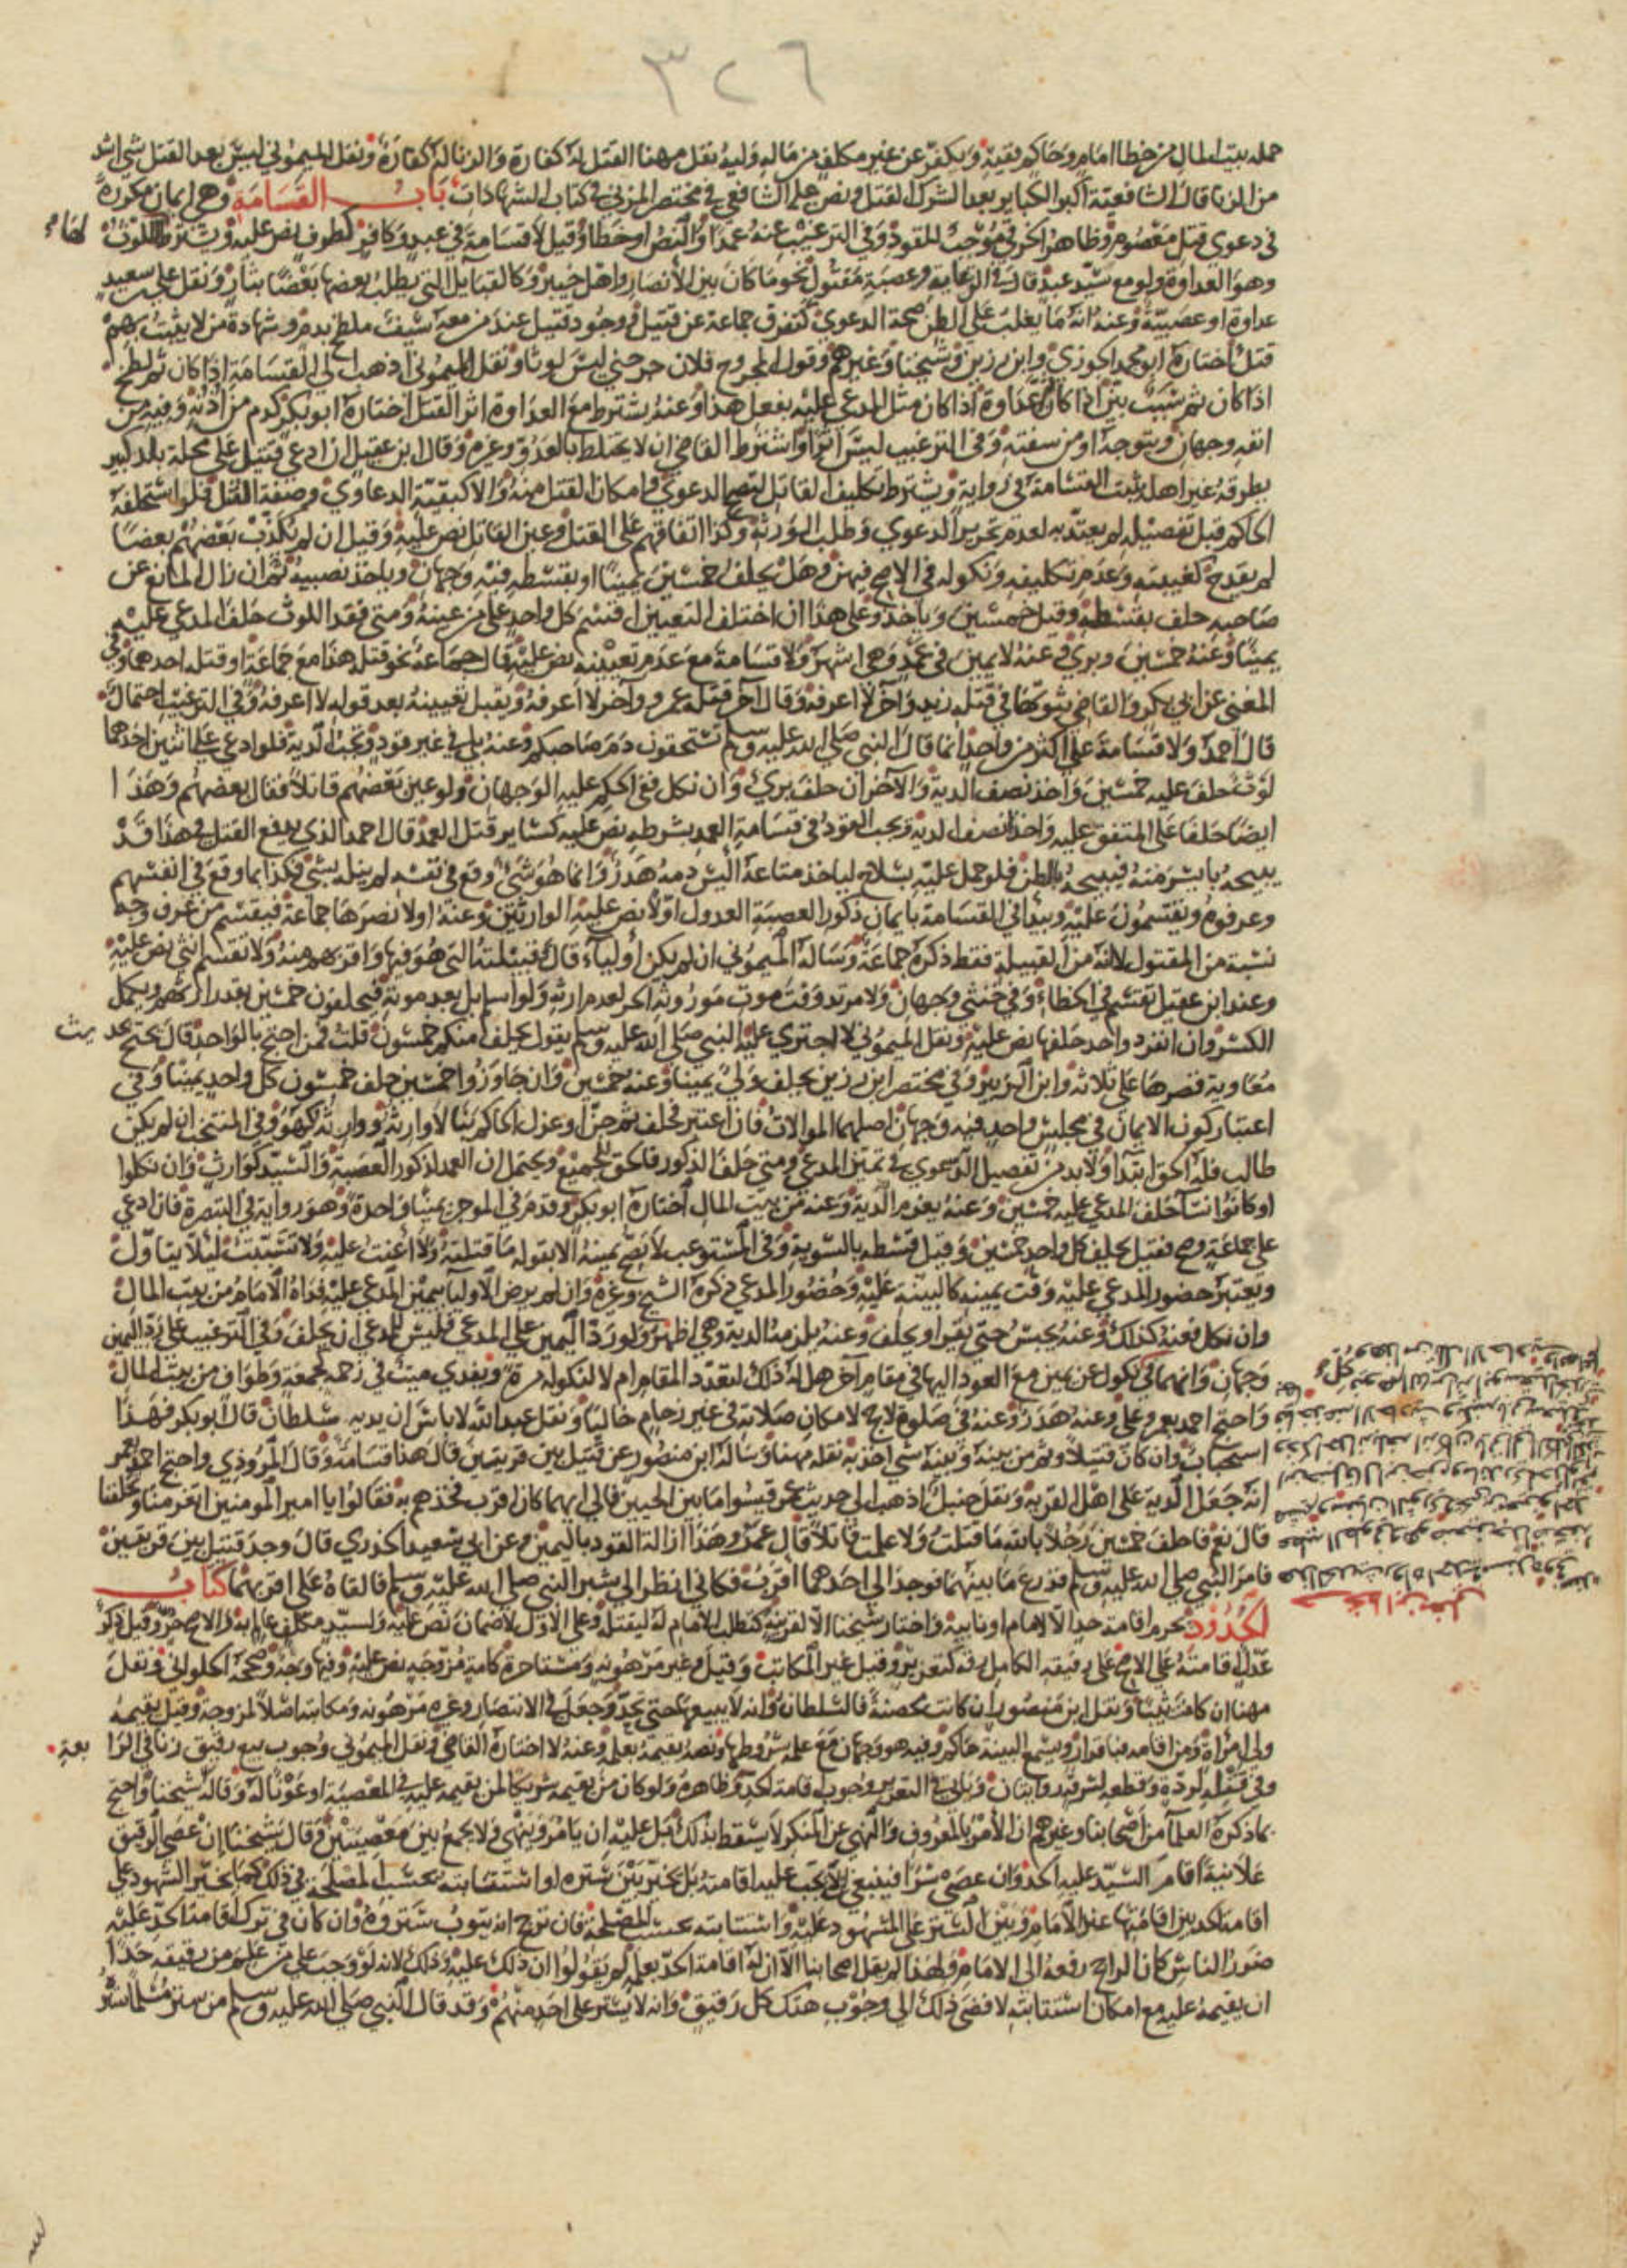 ٣٢٦
حمله بيت المال من خطا امام وحاكم بقيته ويكفر عن غير مكلف من ماله وليه نقل مهنا القتل له كفارة والزنا له كفارة ونقل الميموني ليس بعد القتل شي اشد
من الزنا قال الشافعية اكبر الكباير بعد الشرك القتل ونص عليه الشافعي في مختصر المزني في كتاب الشهادات باب القسامة وهي ايمان مكررة
في دعوى قتل معصوم وظاهر الخرقي موجب للقود وفي الترغيب عنه عمدا والنص او خطا وقيل لا قسامة في عبد وكافر كطرف نص عليه ويشترط اللوث
وهو العداوة ولو مع سيد عبد قال في الرعاية وعصبة مقتول نحو ما كان بين الانصار واهل خيبر وكالقبايل التي يطلب بعضها بعضا بثار ونقل علي بن سعيد
عداوة او عصبية وعنه انه ما يغلب على الظن صحة الدعوى كتفرق جماعة عن قتيل ووجود قتيل عند من معه سيف ملطخ بدم وشهادة من لا يثبت بهم
قتل اختاره ابو محمد الجوزي وابن رزين وشيخنا وغيرهم وقول المجروح فلان جرحني ليس لوثا ونقل الميموني اذهب الى القسامة اذا كان ثم لطخ
اذا كان ثم سبب بين اذا كان عداوة اذا كان مثل المدعى عليه يفعل هذا وعنه يشترط مع العداوة اثر القتل اختاره ابو بكر كدم من اذنه وفيه من
انفه وجهان ويتوجه او من شفته وفي الترغيب ليس اثرا واشترط القاضي ان لا يختلط بالعدو وغيره وقال ابن عقيل ان ادعى قتيل على محلة بلد كبير
يطرقه غير اهله ثبت القسامة في رواية ويشترط تكليف القاتل لتصح الدعوى وامكان القتل منه والا كبقية الدعاوى وصفة القتل فلو استحلفه
الحاكم قبل تفصيله لم يعتد به لعدم تحرير الدعوى وطلب الورثة وكذا اتفاقهم على القتل وعين القاتل نص عليه وقيل ان لم يكذب بعضهم بعضا
لم يقدح كغيبته وعدم تكليفه ونكوله في الاصح فيهن وهل يحلف خمسين يمينا او بقسطه فيه وجهان وياخذ نصيبه ثم ان زال المانع عن
صاحبه حلف بقسطه وقيل خمسين وياخذ وعلى هذا ان اختلف التعيين اقسم كل واحد على من عينه ومتى فقد اللوث حلف المدعى عليه
يمينا وعنه خمسين وبري وعنه لا يمين في عمد وهي اشهر ولا قسامة مع عدم تعيينه نص عليه قال جماعة نحو قتله هذا مع جماعة او قتله احدهما وفي
المغني عن ابي بكر والقاضي ثبوتها في قتله زيد وآخر لا اعرفه وقال آخر قتله عمرو وآخر لا اعرفه ويقبل تعيينه بعد قوله لا اعرفه وفي الترغيب احتمال
قال احمد ولا قسامة على اكثر من واحد انما قال النبي صلى الله عليه وسلم تستحقون دم صاحبكم وعنه بلى في غير قود وتجب الدية فلو ادعى على اثنين احدهما
لوث حلف عليه خمسين واخذ نصف الدية والآخر ان حلف بري وان نكل ففي الحكم عليه الوجهان ولو عين بعضهم قاتلا فقال بعضهم وهذا
ايضا حلفا على المتفق عليه واخذا نصف الدية ويجب القود في قسامة العمد بشرطه نص عليه كساير قتل العمد قال احمد الذي يدفع القتل في هذا قد
يبيحه بايسر منه فيبيحه بالظن فلو حمل عليه بسلاح لياخذ متاعه اليس دمه هدر وانما هو شي وقع في نفسه لم ينله بشي فكذا بما وقع في انفسهم
وعرفوه ويقسمون عليه ويبدا في القسامة بايمان ذكور العصبة العدول اولا نص عليه الوارثين وعنه اولا نصرها جماعة فيقسم من عرف وجه
نسبه من المقتول لا انه من القبيلة فقط ذكره جماعة وساله الميموني ان لم يكن اولياء قال فقبيلته التي هو فيها واقربهم منه ولا تقسم انثى نص عليه
وعند ابن عقيل تقسم في الخطاء وفي خنثى وجهان ولا مرتد وقت موت موروثه الحر لعدم ارثه ولو اسلم بل بعد موته فيحلفون خمسين بقدر ارثهم ويكمل
الكسر وان انفرد واحد حلفها نص عليه ونقل الميموني لا اجتري عليه النبي صلى الله عليه وسلم يقول يحلف منكم خمسون قلت فمن احتج بالواحد قال يحتج بحديث
معاوية قصرها على ثلاثة وابن الزبير وفي مختصر ابن رزين يحلف ولي يمينا وعنه خمسين وان جاوزوا خمسين حلف خمسون كل واحد يمينا وفي
اعتبار كون الايمان في مجلس واحد فيه وجهان اصلهما الموالاة فان اعتبر فحلف ثم جن او عزل الحاكم بنا لا وارثه ووارثه كهو وفي المنتخب ان لم يكن
طالب فله الحق ابتدا ولا بد من تفصيل الدعوى في تمييز المدعى ومتى حلف الذكور فالحق للجميع ويحتمل ان العمد لذكور العصبة والسيد كوارث وان نكلوا
او كانوا نسا حلف المدعى عليه خمسين وعنه يغرم الدية وعنه من بيت المال اختاره ابو بكر وقدم في الموجز يمينا واحدة وهو رواية في التبصرة فان ادعى
على جماعة وصح فقيل يحلف كل واحد خمسين وقيل قسطه بالسوية وفي المستوعب لا تصح يمينه الا بقوله ما قتلته ولا اعنت عليه ولا تسببت ليلا يتاول
ويعتبر حضور المدعى عليه وقت يمينه كالبينة عليه وحضور المدعي ذكره الشيخ وغيره وان لم يرض الاوليا بيمين المدعى عليه فداه الامام من بيت المال
وان نكل فعنه كذلك وعنه يحبس حتى يقر او يحلف وعنه يلزمه الدية وهي اظهر ولو رد اليمين على المدعي فليس للمدعي ان يحلف وفي الترغيب على رد اليمين
وجهان وانهما في نكول عن يمين مع العود اليها في مقام آخر هل له ذلك لتعدد المقام ام لا لنكوله مرة ويفدي ميت في زحمه لجمعة وطواف من بيت المال
واحتج احمد بعمر وعلي وعنه هدر وعنه في صلوة لا حج لامكان صلاته في غير زحام خاليا ونقل عبد الله لا باس ان يديه سلطان قال ابو بكر فهذا
استحباب وان كان قتيلا وثم من بينه وبينه شي اخذ به نقله مهنا وساله ابن منصور عن قتيل بين قريتين قال هذا قسامة وقال المروذي واحتج احمد بعمر
انه جعل الدية على اهل القرية ونقل حنبل اذهب الى حديث عمر قيسوا ما بين الحيين فالى ايهما كان اقرب فخذهم به فقالوا يا امير المومنين اتغرمنا وتحلفنا
قال نعم فاحلف خمسين رجلا بالله ما قتلت ولا علمت قاتلا قال عمر وهذا ازالة القود باليمين وعن ابي سعيد الخدري قال وجد قتيل بين قريتين
فامر النبي صلى الله عليه وسلم فذرع ما بينهما فوجد الى احدهما اقرب فكاني انظر الى شبر النبي صلى الله عليه وسلم فالقاه على اقربهما كتاب
الحدود تحرم اقامة حد الا لامام او نايبه واختار شيخنا الا لقرينة كتطلب الامام له ليقتله وعلى الاول لا ضمان نص عليه ولسيد مكلف عالم به والاصح حر وقيل ذكر
عدل اقامته على الاصح على رقيقه الكامل رقه كتعزير وقيل غير المكاتب وقيل وغير مرهونه ومستاجرة كامة مزوجه نص عليه وفيها وجه وصححه الحلواني ونقل
مهنا ان كانت ثيبا ونقل ابن منصور ان كانت محصنة فالسلطان وانه لا يبيعها حتى تحد وجعل في الانتصار وغيره مرهونه ومكاتبه اصلا لمزوجة وقيل يقيمه
ولي امراة ومن اقامه فباقرار ويسمع البينة حاكم وفيه هو وجهان مع علمه شروطها ونصه يقيمه بعلمه وعنه لا اختاره القاضي ونقل الميموني وجوب بيع رقيق زنا في الرابعة
وفي قتله لردة وقطعه لسرقة روايتان وياتي في التعزير وجوب اقامة الحد وظاهره ولو كان من يقيمه شريكا لمن يقيمه عليه في المعصية او عونا له وقاله شيخنا واحتج
بما ذكره العلما من اصحابنا وغيرهم ان الامر بالمعروف والنهي عن المنكر لا يسقط بذلك بل عليه ان يامر وينهى ولا يجمع بين معصيتين وقال شيخنا ان عصى الرقيق
علانية اقام السيد عليه الحد وان عصى سرا فينبغي الا يجب عليه اقامته بل يخير بين ستره او استتابته بحسب المصلحة في ذلك كما يخير الشهود على
اقامة الحد بين اقامتها عند الامام وبين الستر على المشهود عليه واستتابته بحسب المصلحة فان ترجح انه يتوب ستروه وان كان في ترك اقامة الحد عليه
ضرر الناس كان الراجح رفعه الى الامام ولهذا لم يقل اصحابنا الا ان له اقامة الحد بعلمه لم يقولوا ان ذلك عليه وذلك لانه لو وجب على من علم من رقيقه حدا
ان يقيمه عليه مع امكان استتابته لافضى ذلك الى وجوب هتك كل رقيق وانه لا يستر على احد منهم وقد قال النبي صلى الله عليه وسلم من ستر مسلما ستره